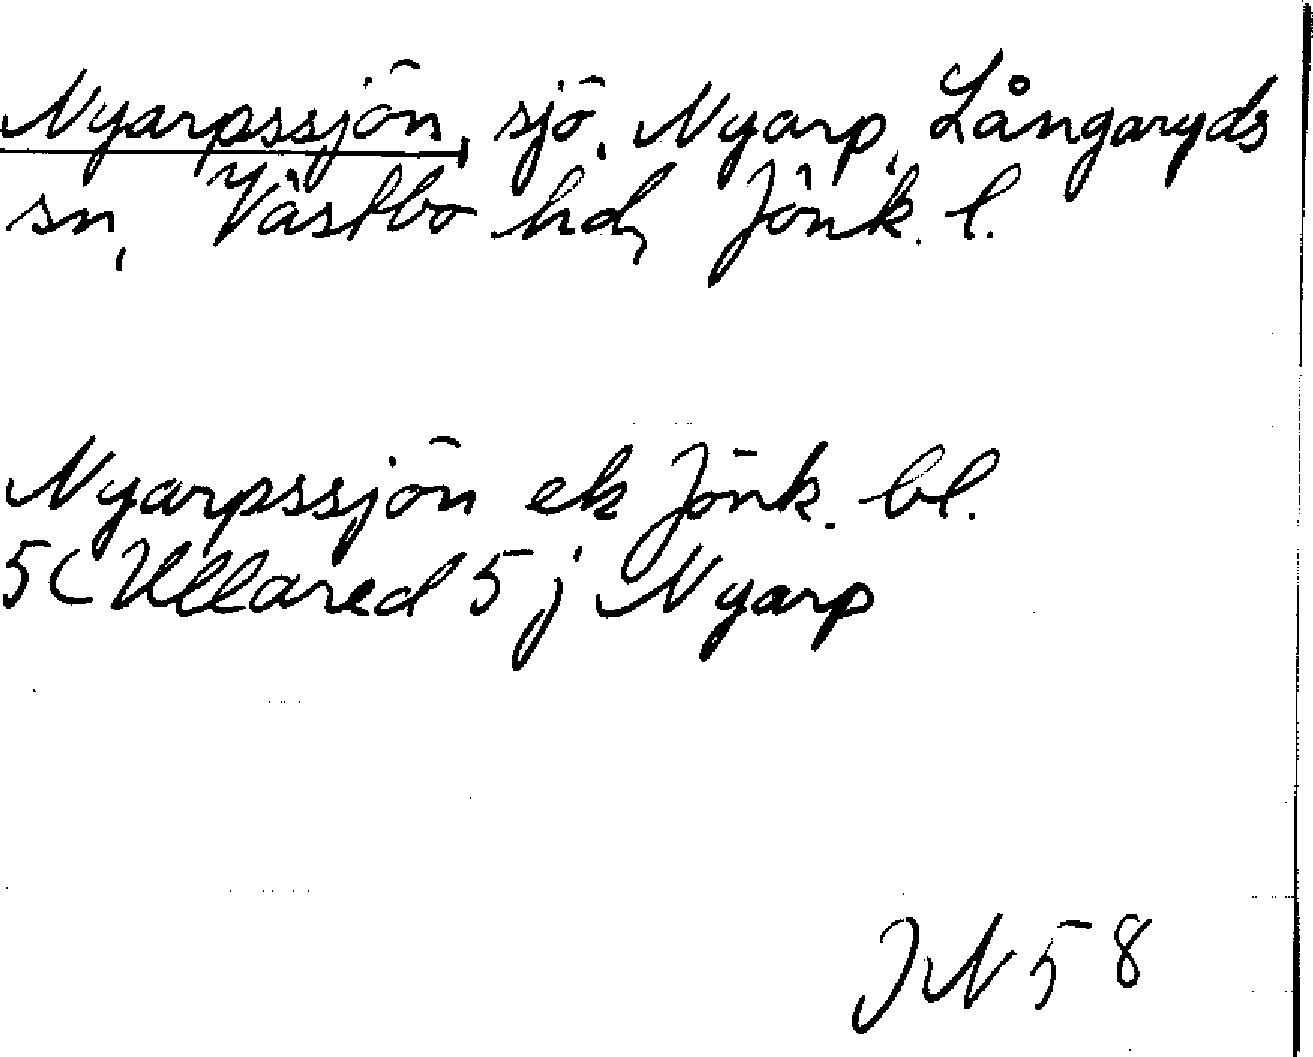 Nyarpssjön, sjö, Nyarp, Långaryds
sn, Västbo hd, Jönk. l.
Nyarpssjön ek Jönk. bl.
5C Ullared 5j Nyarp
58